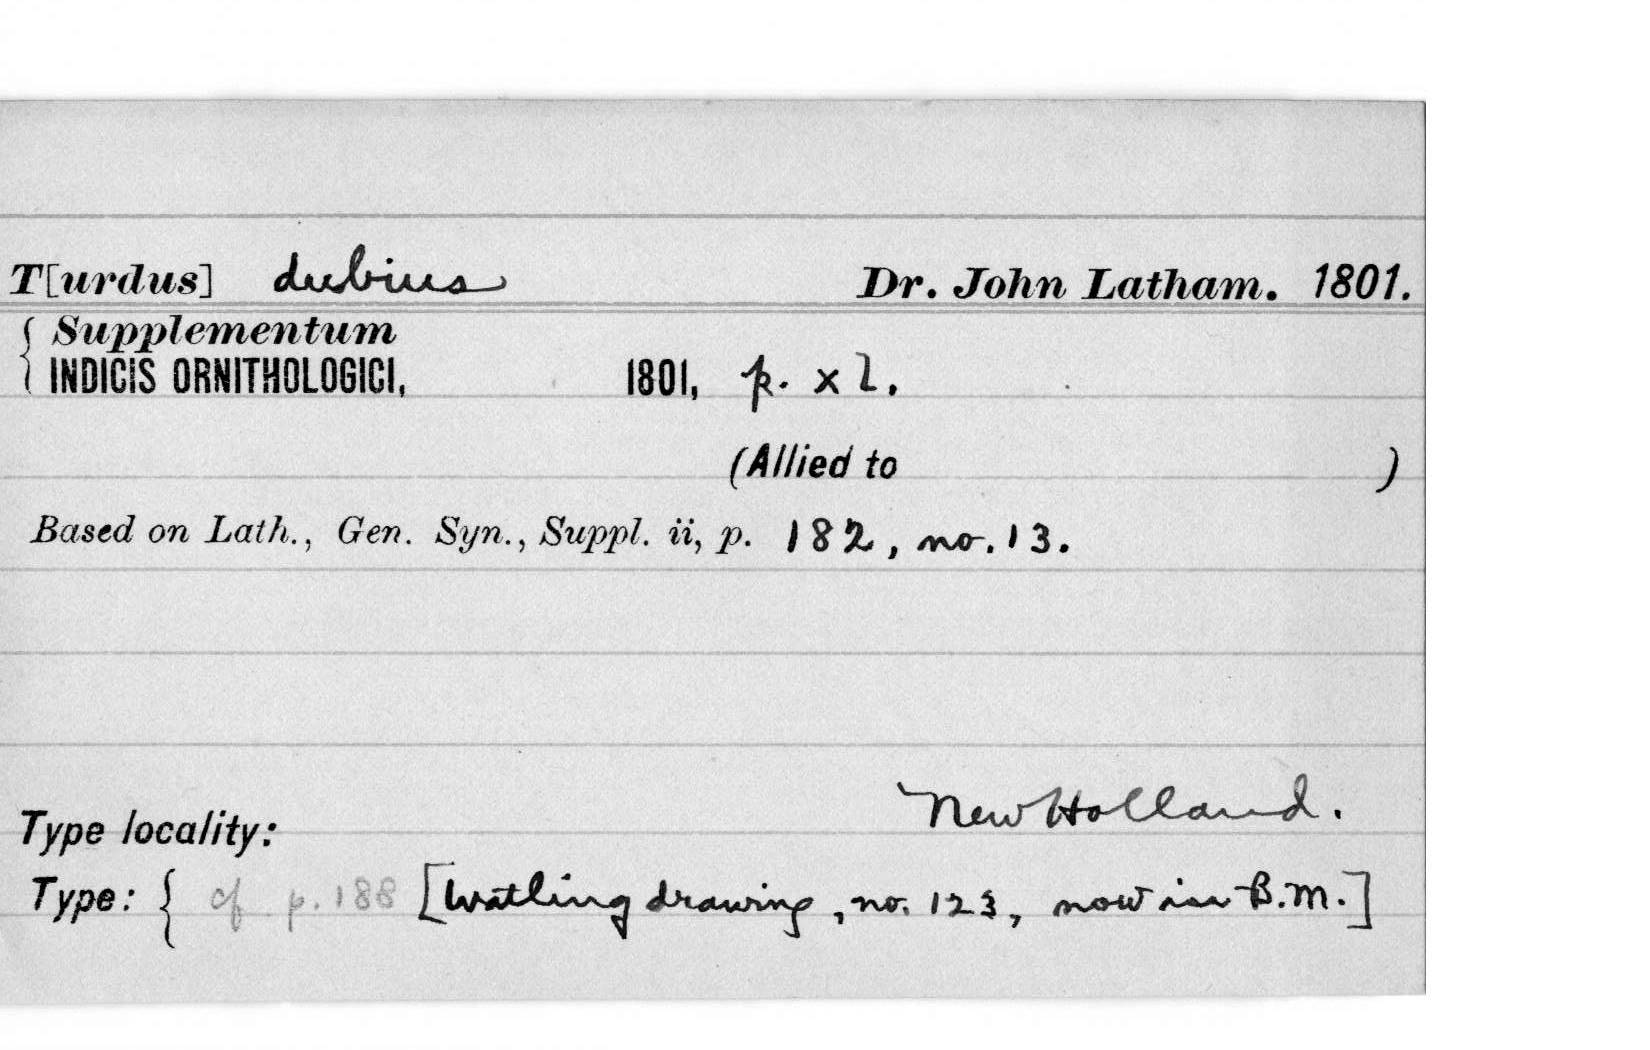 T[urdus] dubius Dr. John Latham. 1801.
Supplementum
INDICIS ORNITHOLOGICI, 1801, p. xl.
(Allied to )
Based on Lath., Gen. Syn., Suppl. ii, p. 182, no. 13.
New Holland.
Type locality:
Type: { cf p. 188 [Watling drawing, no. 123, now in B.M.]